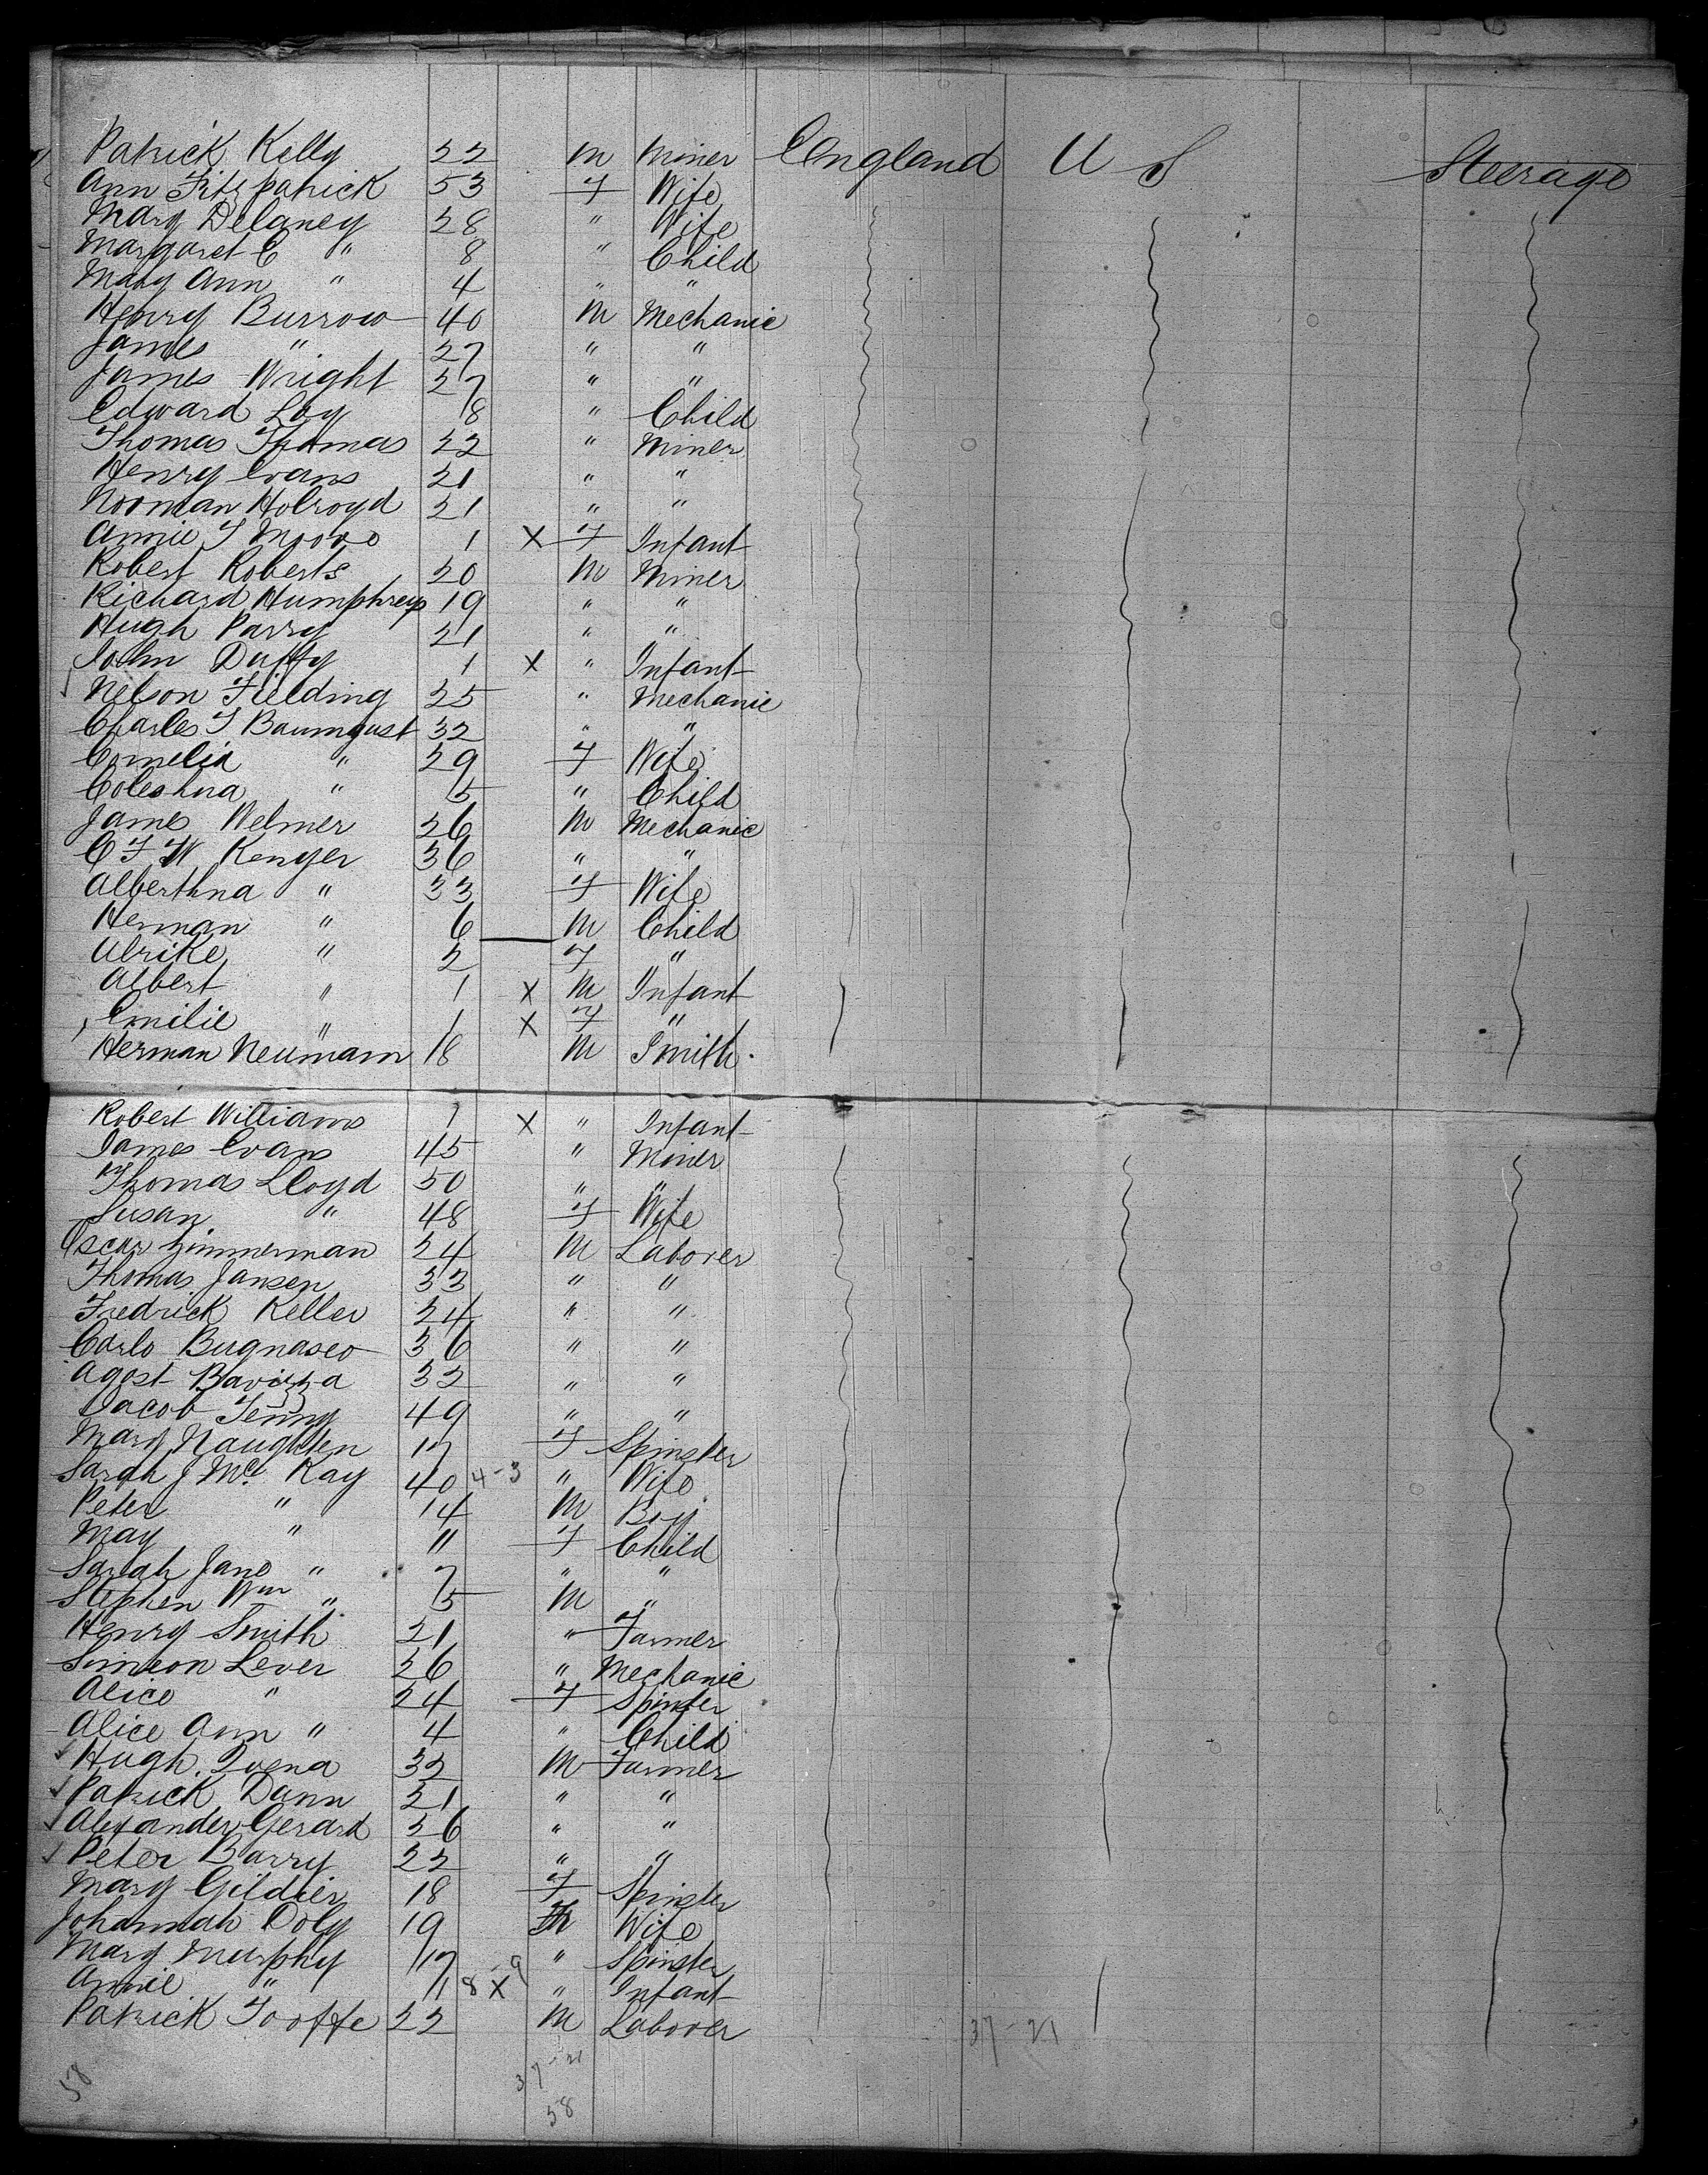 Patrick Kelly 22 M Miner England U S Steerage
Ann Fitzpatrick 53 F Wife
Mary Delaney 28 " Wife
Margaret C " 8 " Child
Mary Ann " 4 " "
Henry Burrow 40 M Mechanic
James " 27 " "
James Wright 27 " "
Edward Loy 8 " Child
Thomas Thomas 22 " Miner
Henry Evans 21 " "
Norman Holroyd 21 " "
Annie F Moore 1 X F Infant
Robert Roberts 20 M Miner
Richard Humphreys 19 " "
Hugh Parry 21 " "
John Duffy 1 X " Infant
Nelson Fielding 25 " Mechanic
Charles F Baumgust 32 " "
Cornelia " 29 F Wife
" 5 " Child
James Welmer 26 M Mechanic
C F W Kenyer 36 " "
Alberthna " 33 F Wife
Herman " 6 M Child
Ulrike " 2 F "
Albert " 1 X M Infant
Emilie " 1 X F "
Herman Neumann 18 M Smith
Robert Williams 1 X " Infant
James Evans 45 " Miner
Thomas Lloyd 50 " "
Susan " 48 F Wife
Oscar Zimmerman 24 M Laborer
Thomas Jansen 33 " "
Fredrick Keller 24 " "
Carlo Bugnasco 36 " "
Agost 32 " "
Jacob Jenny 49 " "
Mary Naughten 17 F Spinster
Sarah J Mc Kay 40 4-3 " Wife
Peter " 14 M Boy
May " 11 F Child
Sarah Jane " 7 " "
Stephen Wm " 5 M "
Henry Smith 21 " Farmer
Simeon Lever 26 " Mechanic
Alice " 24 F Spinster
Alice Ann " 4 " Child
Hugh 32 M Farmer
Patrick Dann 21 " "
Alexander Gerard 26 " "
Peter Barry 22 " "
Mary Gildier 18 F Spinster
Johannah Doly 19 Wife
Mary Murphy 17 " Spinster
Annie " 11 8 X 9 " Infant
Patrick Tooffe 22 M Laborer
37-21
37-21
58
58